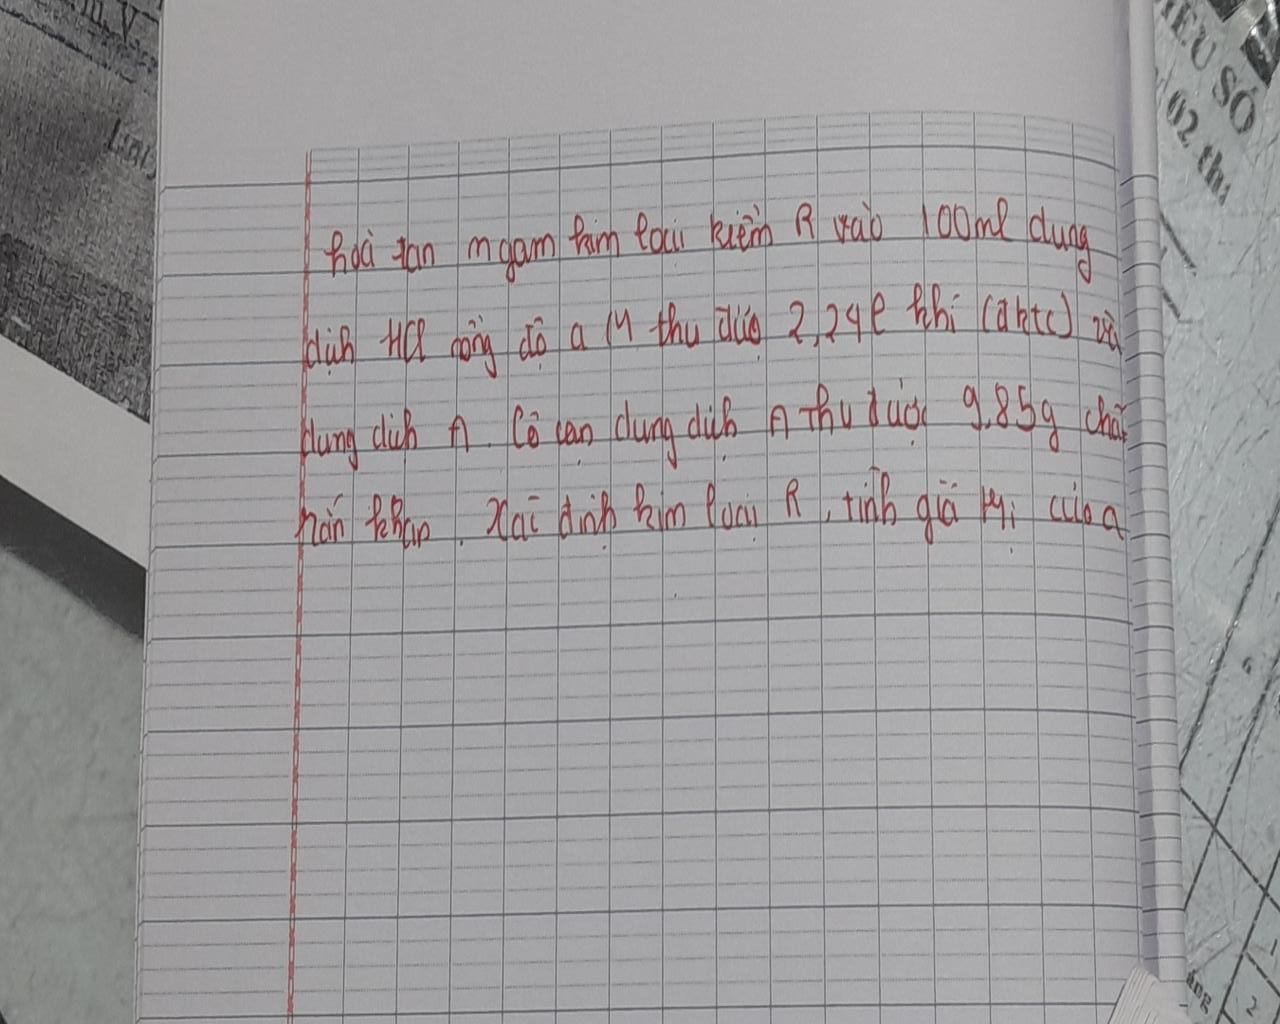 hoà tan m gam kim loại kiềm R vào 100ml dung
dịch HCl nồng độ a M thu được 2,24l khí (đktc) và
dung dịch A. Cô cạn dung dịch A thu được 9,85g chất
rắn khan. Xác định kim loại R, tính giá trị của a
IỂU SỐ
02 th
2